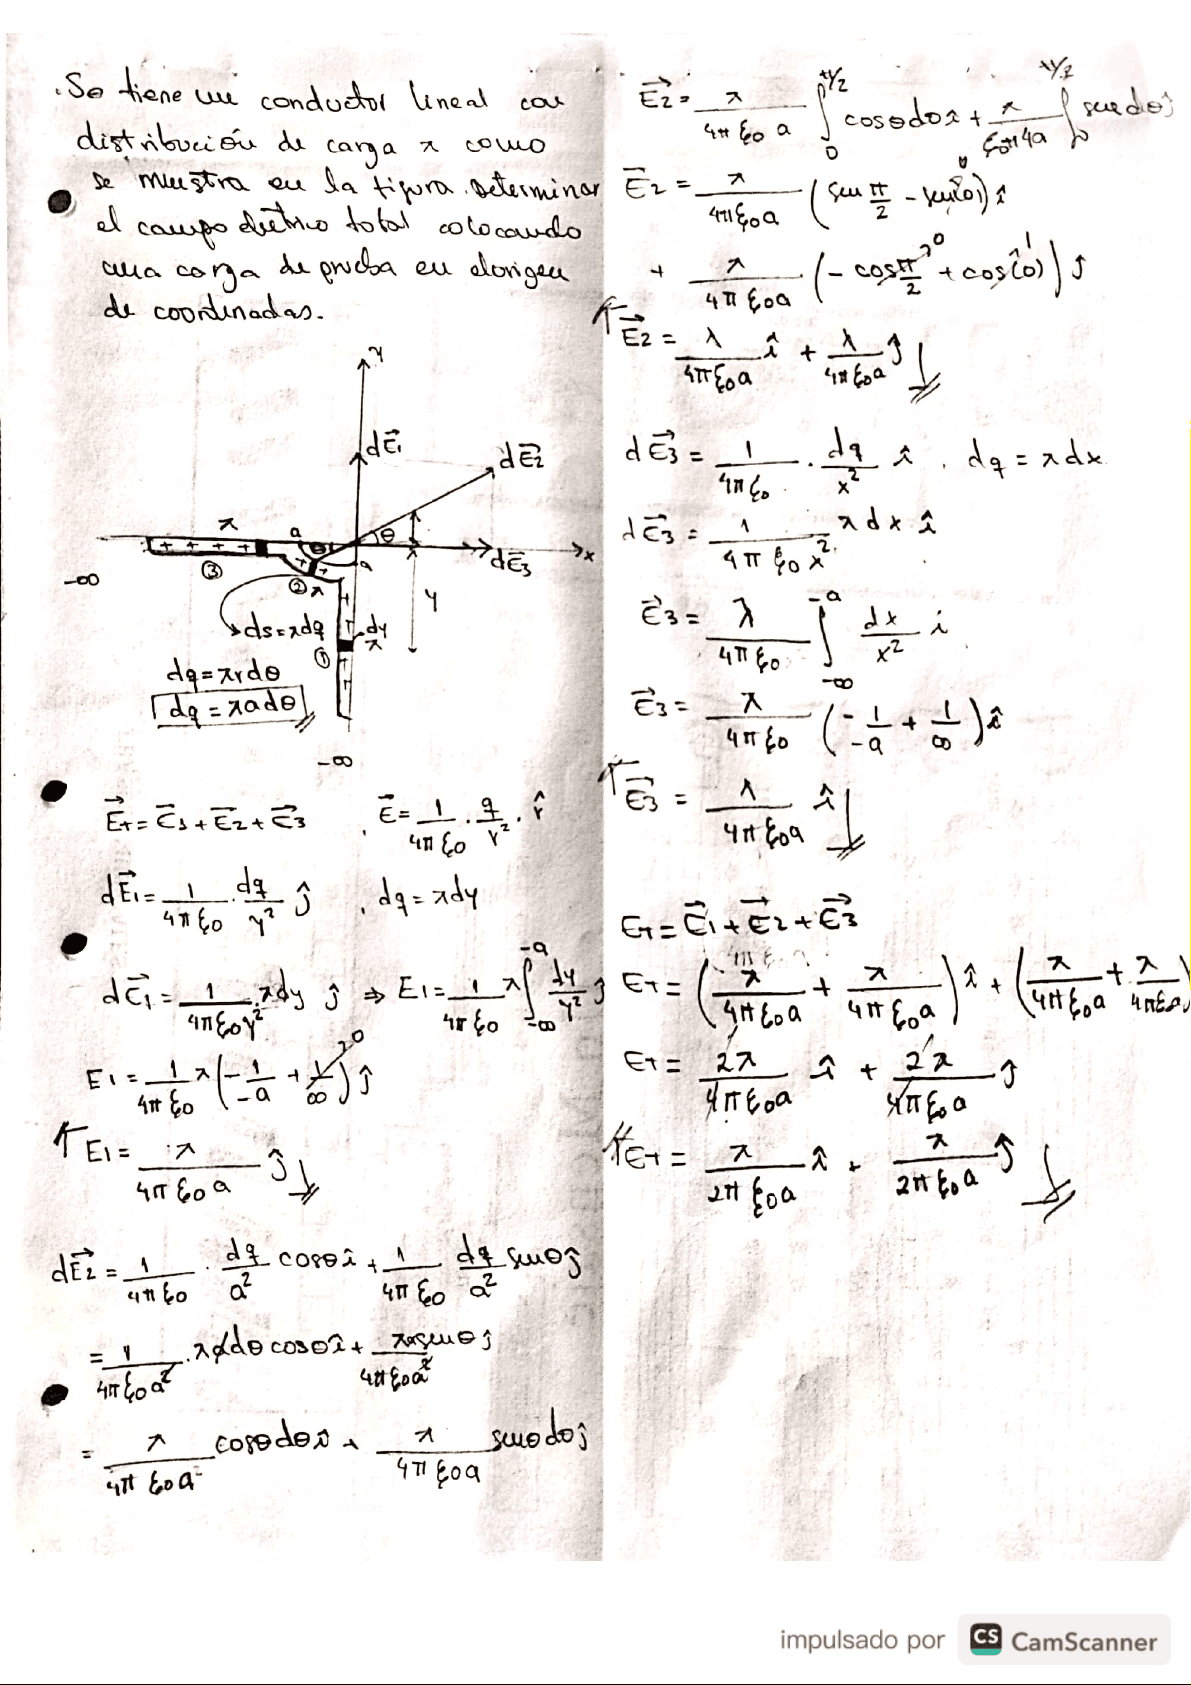 . Se tiene un conductor lineal con
distribución de carga λ como
se muestra en la figura. Determinar
el campo eléctrico total colocando
una carga de prueba en el origen
de coordenadas.
y
dE⃗₁
dE⃗₂
λ
a
θ
θ
x
+ + + +
a
dE⃗₃
-∞
③
② λ
y
ds = λdq
dy
λ
①
dq = λrdθ
dq = λadθ
-∞
E⃗т = E⃗₁ + E⃗₂ + E⃗₃ , E⃗ = 1/4πξ₀ · q/r² · r̂
dE⃗₁ = 1/4πξ₀ · dq/y² ĵ , dq = λdy
dE⃗₁ = 1/4πξ₀y² · λdy ĵ ⇒ E₁ = 1/4πξ₀ λ ∫_{-∞}^{-a} dy/y² ĵ
E₁ = 1/4πξ₀ λ (-1/-a + 1/∞ → 0) ĵ
E₁ = λ/4πξ₀a ĵ
dE⃗₂ = 1/4πξ₀ · dq/a² cosθ î + 1/4πξ₀ dq/a² senθ ĵ
= 1/4πξ₀a² · λadθ cosθ î + λa senθ/4πξ₀a² ĵ
= λ/4πξ₀a cosθdθ î + λ/4πξ₀a senθdθ ĵ
E⃗₂ = λ/4πξ₀a ∫₀^{π/2} cosθdθ î + λ/ξ₀π4a ∫₀^{π/2} senθdθ ĵ
E⃗₂ = λ/4πξ₀a (sen π/2 - sen(0) 0) î
+ λ/4πξ₀a (-cos π/2 → 0 + cos(0) 1) ĵ
E⃗₂ = λ/4πξ₀a î + λ/4πξ₀a ĵ
dE⃗₃ = 1/4πξ₀ · dq/x² î , dq = λdx
dE⃗₃ = 1/4πξ₀x² λdx · î
E⃗₃ = λ/4πξ₀ ∫_{-∞}^{-a} dx/x² i
E⃗₃ = λ/4πξ₀ (-1/-a + 1/∞) î
E⃗₃ = λ/4πξ₀a î
Eт = E⃗₁ + E⃗₂ + E⃗₃
Eт = (λ/4πξ₀a + λ/4πξ₀a) î + (λ/4πξ₀a + λ/4πξ₀a)
Eт = 2λ/4πξ₀a î + 2λ/4πξ₀a ĵ
Eт = λ/2πξ₀a î + λ/2πξ₀a ĵ
impulsado por CS CamScanner